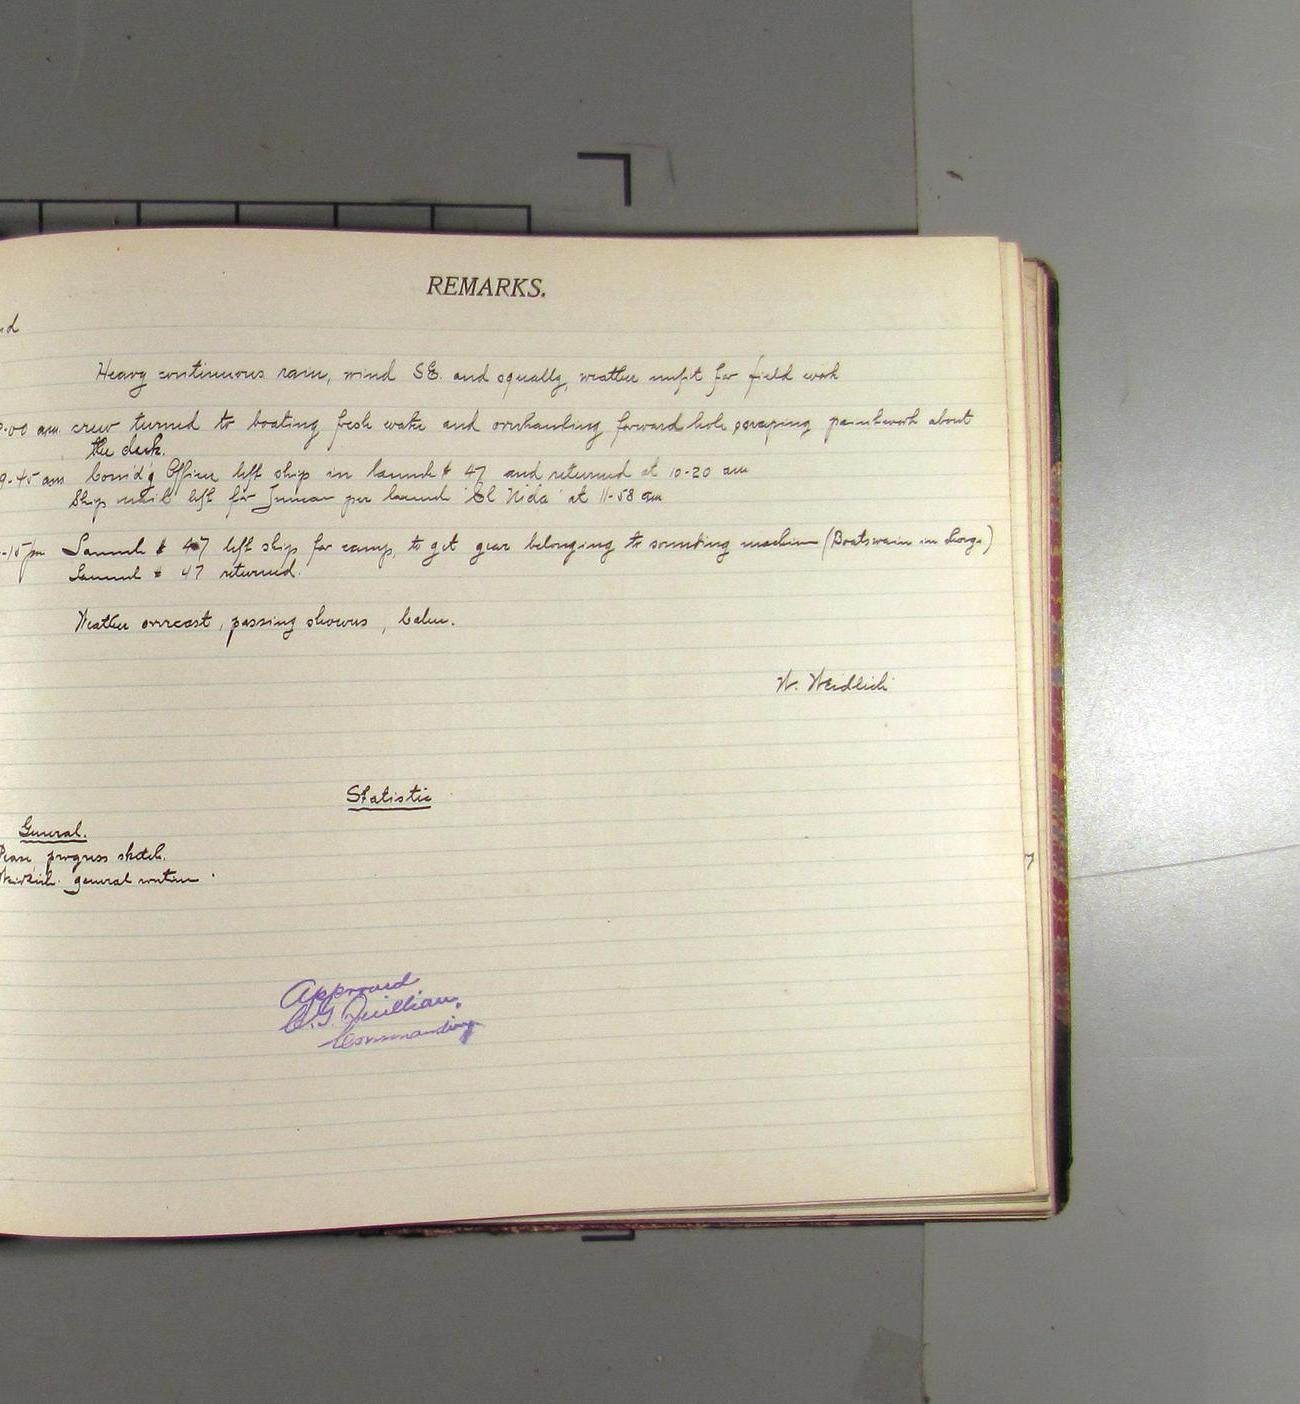 REMARKS.
Heavy continuous rain, wind SE. and squally, weather unfit for field work
-00 am crew turned to boating fresh water and overhauling forward hole scraping paintwork about
the deck.
9-45 am Com'd'g Officer left ship in launch # 47 and returned at 10-20 am
Ship mail left for per launch "El Nido" at 11-58 am
-15 pm Launch # 47 left ship for camp, to get gear belonging to sounding machine (Boatswain in charge)
Launch # 47 returned.
Weather overcast, passing showers, Calm.
W. Weidlich
Statistic
General.
progress sketch.
general routine
Approved
C.G. Quillian.
Commanding
7